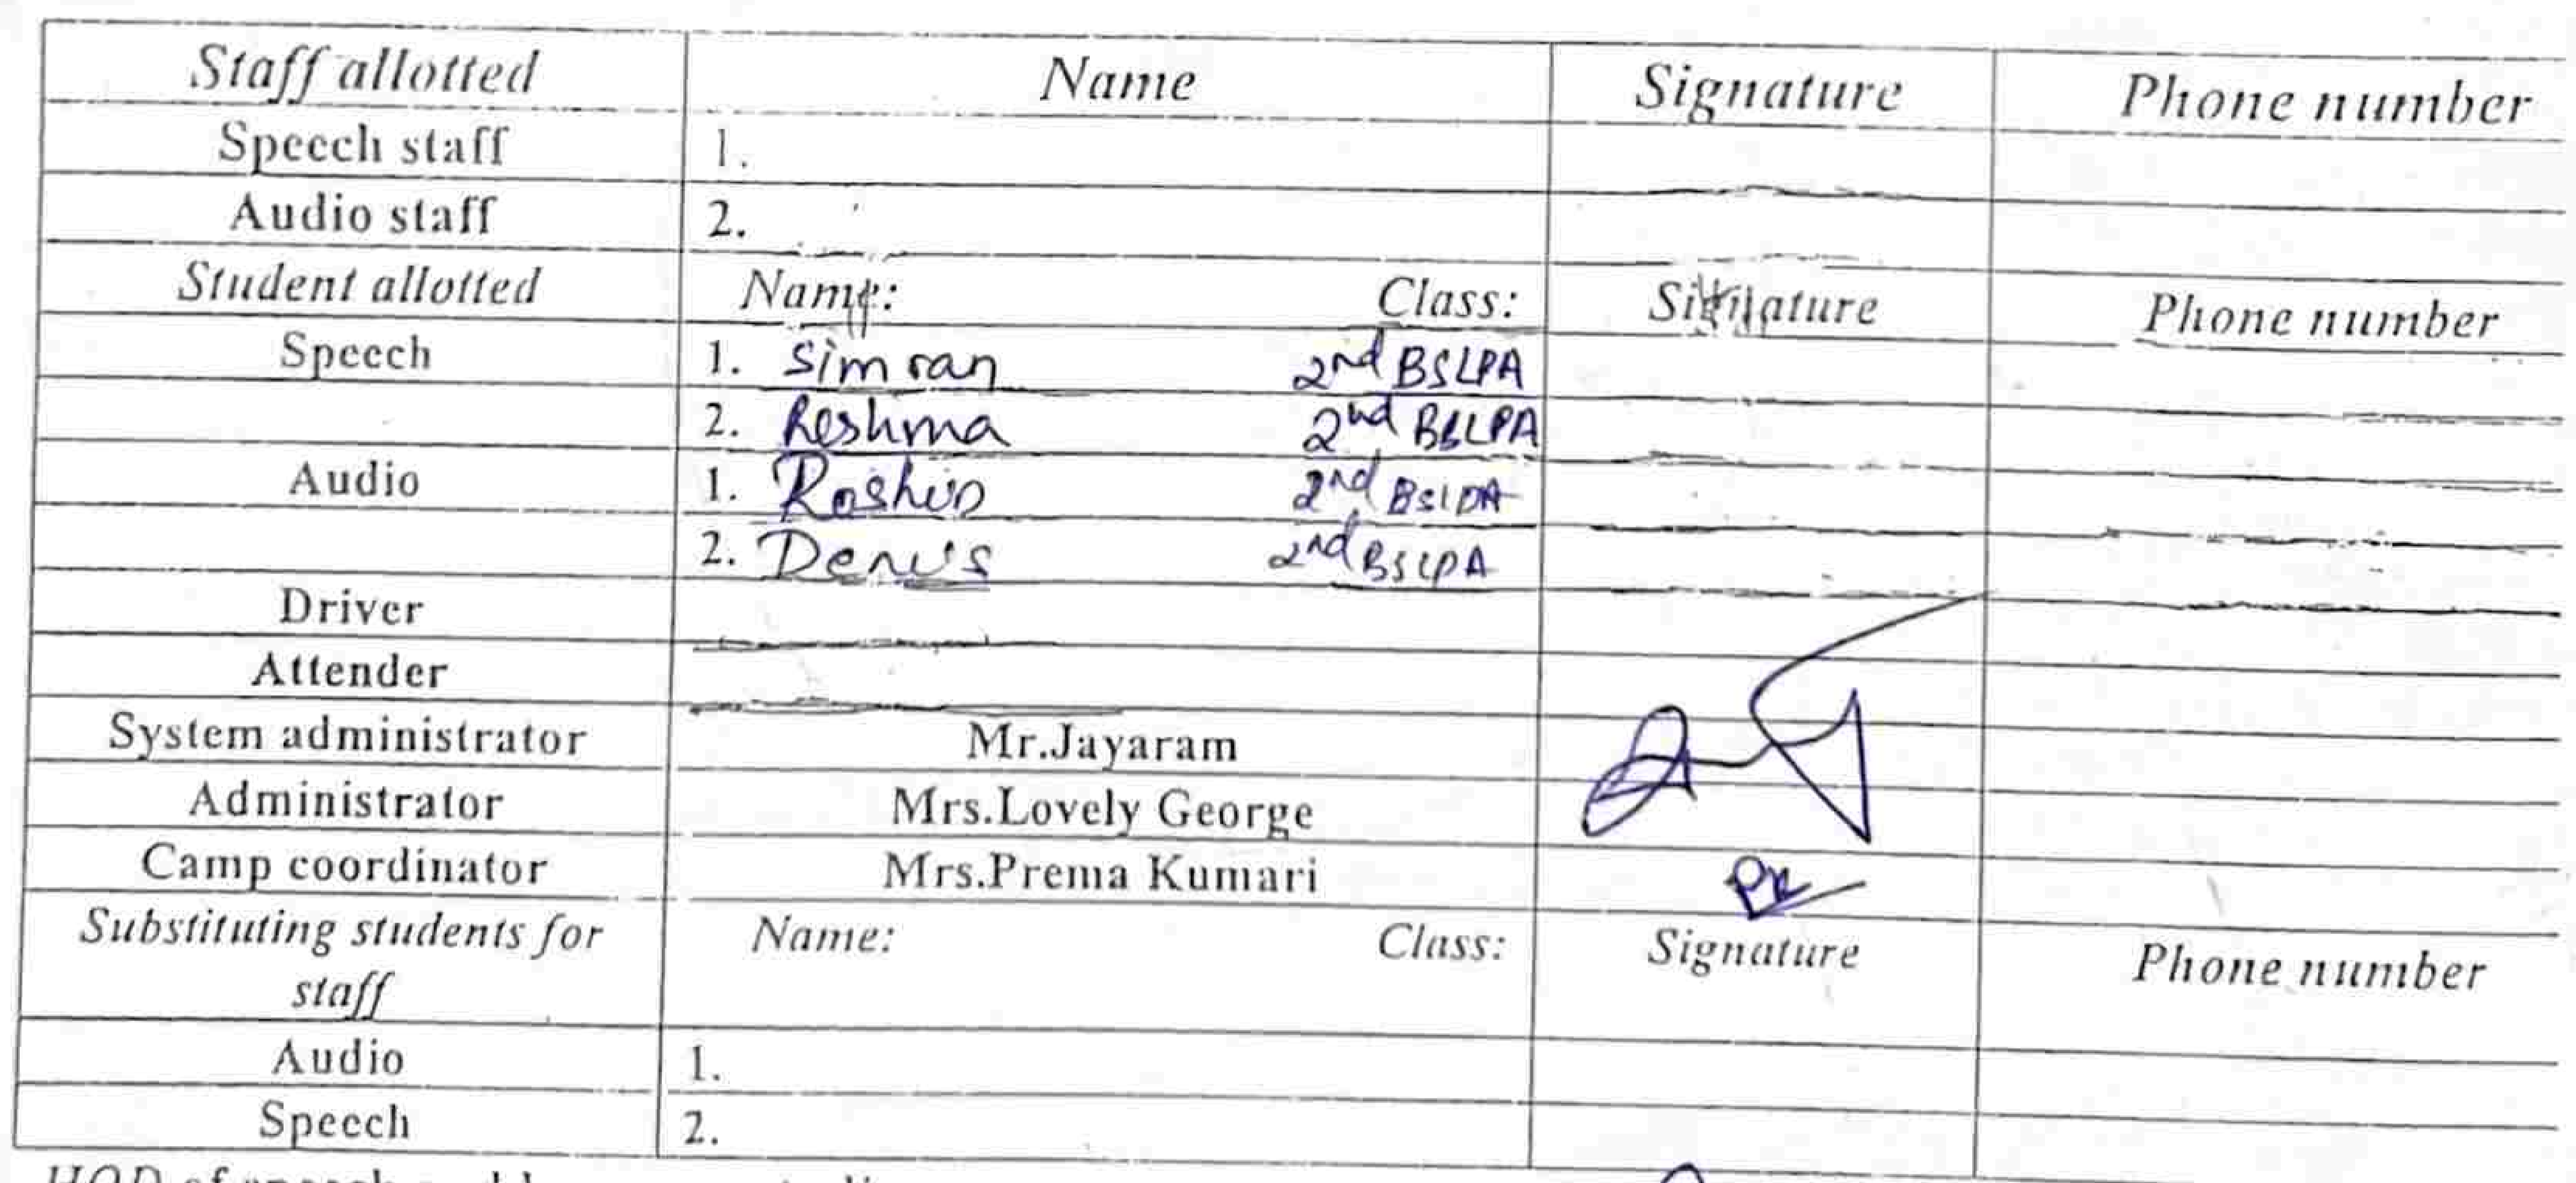 Staff allotted Name Signature Phone number
Speech staff 1.
Audio staff 2.
Student allotted Name: Class: Signature Phone number
Speech 1. Simran 2nd BSLPA
2. Reshma 2nd BSLPA
Audio 1. Roshin 2nd BSLPA
2. Denis 2nd BSLPA
Driver
Attender
System administrator Mr.Jayaram
Administrator Mrs.Lovely George
Camp coordinator Mrs.Prema Kumari
Substituting students for Name: Class: Signature Phone number
staff
Audio 1.
Speech 2.
HOD of speech